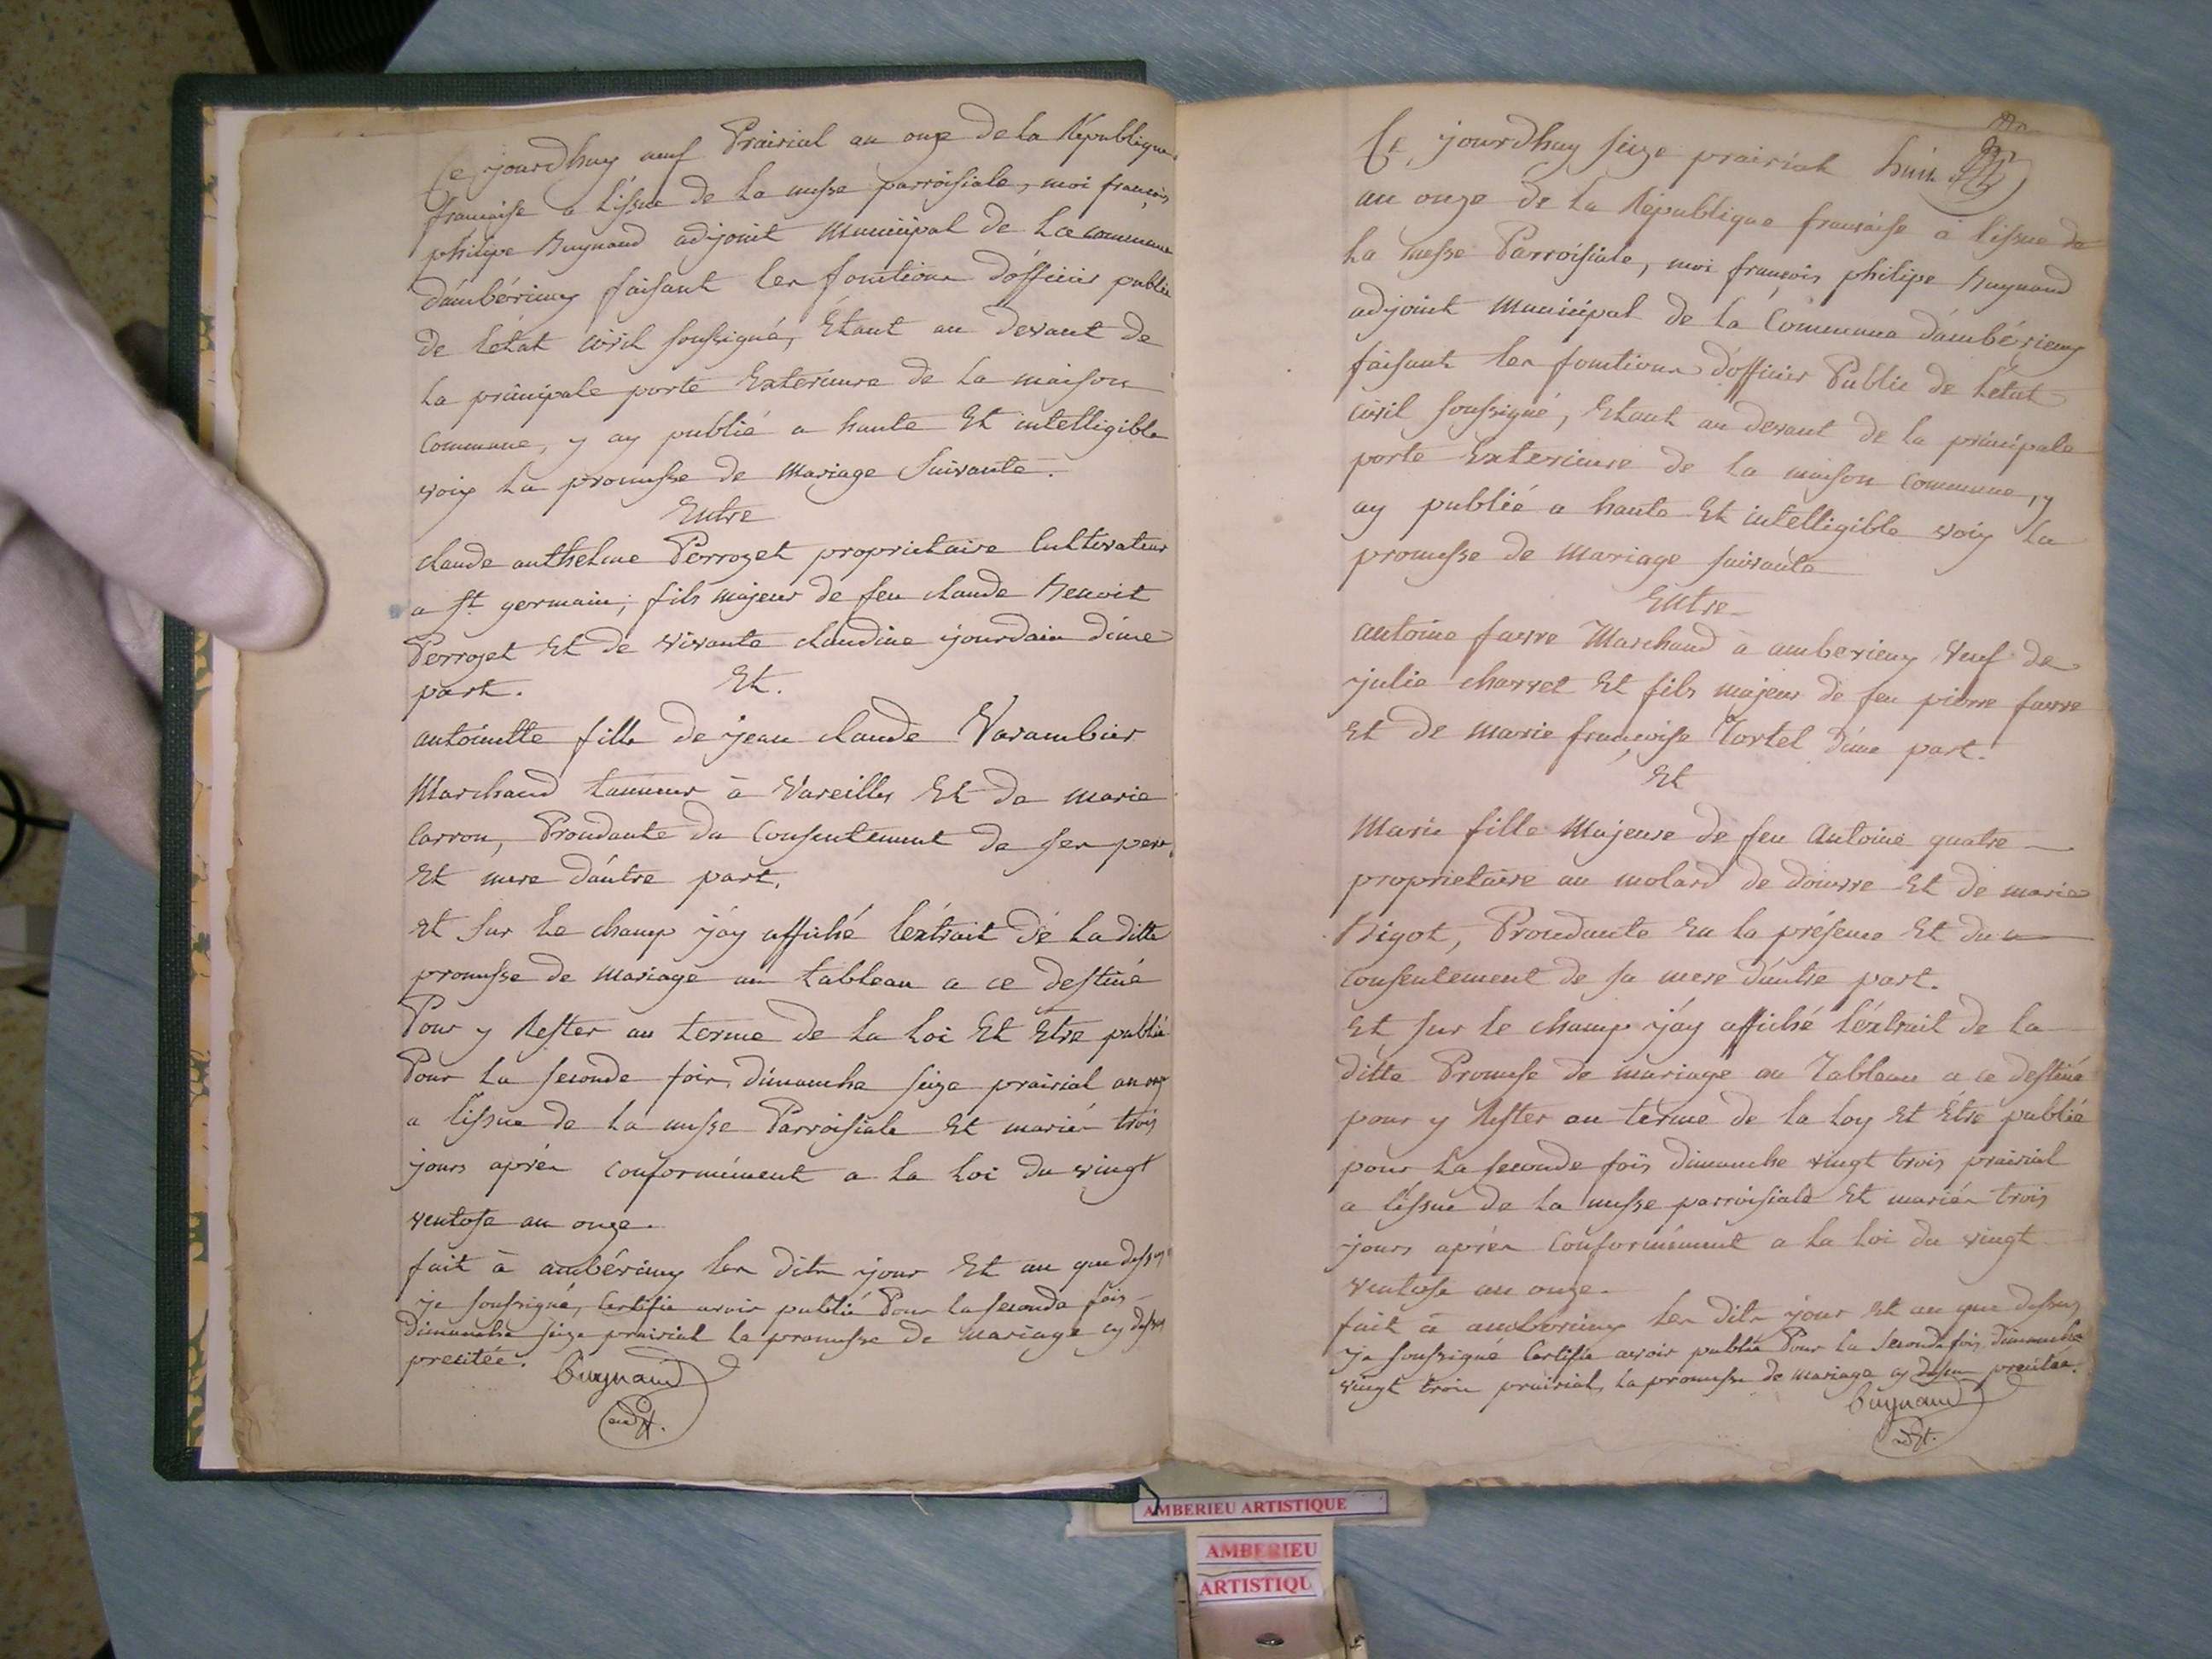 Ce jourdhuy neuf Prairial an onze de la République
française a l'issue de la messe parroisiale, moi françois
philipe Buynand adjoint Municipal de la commune
d'ambérieux faisant les fonctions d'officier public
de l'état civil soussigné, Étant au devant de
la principale porte Exterieure de la maison
Commune, y ay publié a haute Et intelligible
voix La promesse de Mariage Suivante.
Entre
claude anthelme Perrozet proprietaire Cultivateur
a St germain, fils majeur de feu claude Benoit
Perrozet Et de vivante claudine jourdain d'une
part. Et.
antoinette fille de jean claude Varambier
Marchand tanneur à Vareilles Et de marie
Carron, Procedante du Consentement de ses pere
Et mere d'autre part.
et sur le champ j'ay affiché l'extrait de La ditte
promesse de Mariage au tableau a ce destiné
Pour y Rester au terme de La Loi Et Être publié
Pour La seconde fois dimanche seize prairial an onze
a l'issue de La messe Parroisiale Et mariés trois
jours après conformément a La Loi du vingt
ventose an onze.
fait à ambérieux les dits jour Et an que dessus
je soussigné, Certifie avoir publié Pour La seconde fois
Dimanche seize prairial la promesse de Mariage cy dessus
precitée. Buynand
adjt.
Ce jourdhuy seize prairial
an onze de la République française a l'issue de
La messe Parroisiale, moi françois philipe Buynand
adjoint Municipal de la Commune d'ambérieux
faisant les fonctions d'officier Public de l'état
civil soussigné, Etant au devant de la principale
porte Exterieure de La maison commune, y
ay publié a haute Et intelligible voix La
promesse de Mariage suivante
Entre
antoine favre Marchand à amberieux veuf de
julie charvet Et fils majeur de feu pierre favre
Et de marie françoise Tortel d'une part.
Et
Marie fille Majeure de feu Antoine quatre
proprietaire au molard de douvre Et de marie
Bigot, Procedante En la présence Et du
consentement de sa mere d'autre part.
Et sur le champ j'ay affiché l'éxtrait de la
ditte Promesse de mariage au Tableau a ce destiné
pour y Rester au terme de la Loy Et Être publié
pour La seconde fois dimanche vingt trois prairial
a l'issue de La messe parroisiale Et mariés trois
jours après Conformément a La Loi du vingt
ventose an onze.
fait à amberieux les dits jour Et an que dessus
je soussigné Certifie avoir publié Pour La Seconde fois dimanche
vingt trois prairial, la promesse de mariage cy dessus precitée.
Buynand
adjt.
AMBERIEU ARTISTIQUE
AMBERIEU
ARTISTIQU